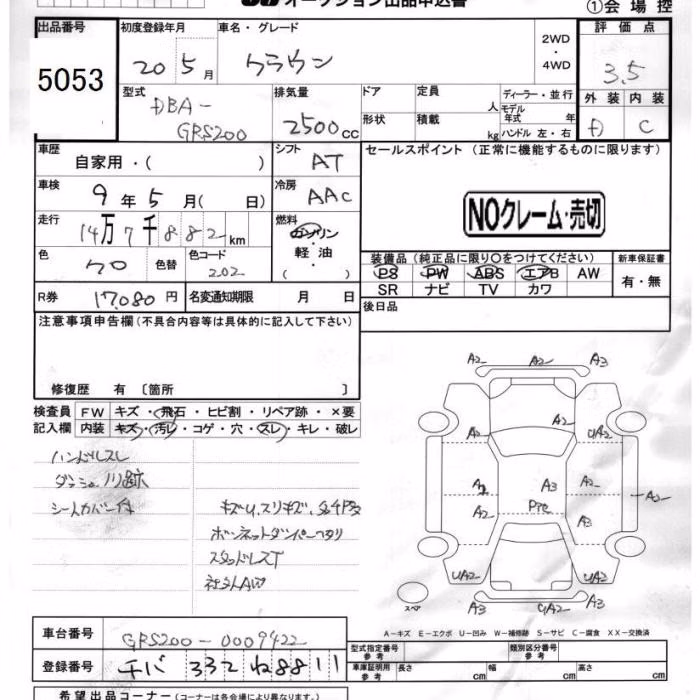 オークション出品申込書
①会場控
出品番号 初度登録年月 車名・グレード 評価点
5053 20 5月 クラウン 2WD・4WD 3.5
型式 排気量 ドア 定員 人 ディーラー・並行 外装 内装
DBA-GRS200 2500cc 形状 積載 kg モデル年式 年 ハンドル 左・右 D C
車歴 自家用・( ) シフト AT セールスポイント (正常に機能するものに限ります)
車検 9年5月( 日) 冷房 AAC NOクレーム・売切
走行 14万7千882km 燃料 ガソリン・軽油 ( )
色 クロ 色替 色コード 202 装備品 (純正品に限り○をつけてください) 新車保証書
PS PW ABS エアB AW 有・無
R券 17,080円 名変通知期限 月 日 SR ナビ TV カワ
注意事項申告欄 (不具合内容等は具体的に記入して下さい) 後日品
修復歴 有 〔箇所 〕
検査員 FW キズ・飛石・ヒビ割・リペア跡・×要
記入欄 内装 キズ・汚レ・コゲ・穴・スレ・キレ・破レ
ハンドルスレ
シートカバー付
スタッドレスT
社外AW
A2 A2 A3
A2 UA2
A2 A3 A2
A2 Pře A3
UA2 UA2
スペア A3 A3
A-キズ E-エクボ U-凹み W-補修跡 S-サビ C-腐食 XX-交換済
車台番号 GRS200-0009422 型式指定番号 参考 類別区分番号 参考
登録番号 チバ 332 ね 8811 車庫証明用 参考 長さ cm 幅 cm 高さ cm
希望出品コーナー (コーナーは各会場により異なります。)